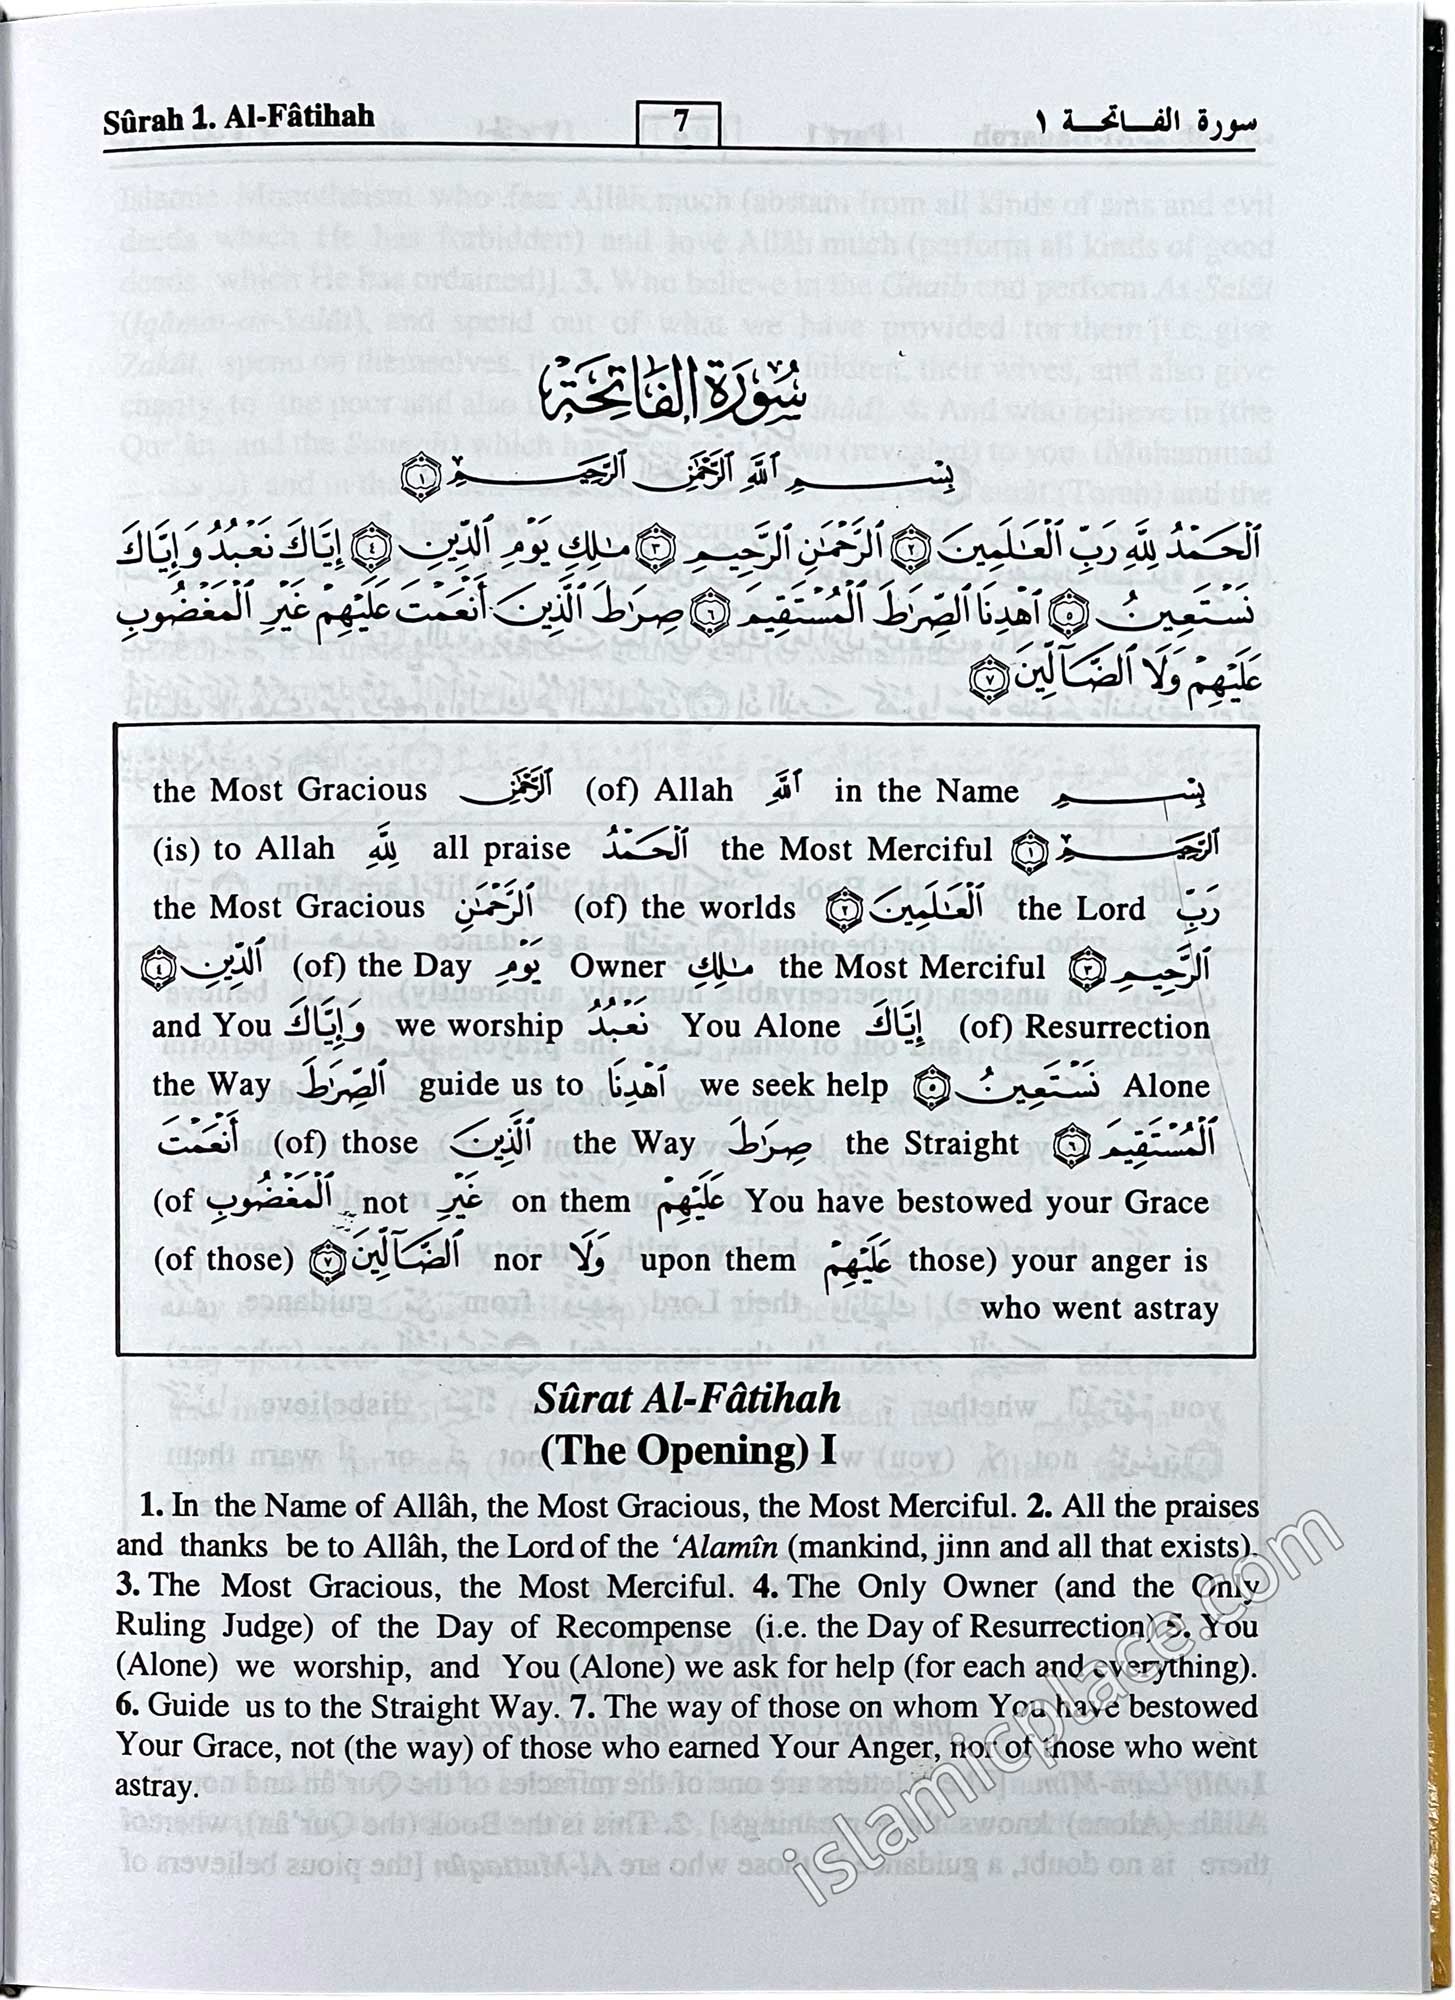 Sûrah 1. Al-Fâtihah 7 سورة الفاتحة ١
سُورَةُ الفَاتِحَةِ
بِسْمِ ٱللَّهِ ٱلرَّحْمَٰنِ ٱلرَّحِيمِ ١
ٱلْحَمْدُ لِلَّهِ رَبِّ ٱلْعَٰلَمِينَ ٢ ٱلرَّحْمَٰنِ ٱلرَّحِيمِ ٣ مَٰلِكِ يَوْمِ ٱلدِّينِ ٤ إِيَّاكَ نَعْبُدُ وَإِيَّاكَ
نَسْتَعِينُ ٥ ٱهْدِنَا ٱلصِّرَٰطَ ٱلْمُسْتَقِيمَ ٦ صِرَٰطَ ٱلَّذِينَ أَنْعَمْتَ عَلَيْهِمْ غَيْرِ ٱلْمَغْضُوبِ
عَلَيْهِمْ وَلَا ٱلضَّآلِّينَ ٧
بِسْمِ in the Name ٱللَّهِ (of) Allah ٱلرَّحْمَٰنِ the Most Gracious
ٱلرَّحِيمِ ١ the Most Merciful ٱلْحَمْدُ all praise لِلَّهِ (is) to Allah
رَبِّ the Lord ٱلْعَٰلَمِينَ ٢ (of) the worlds ٱلرَّحْمَٰنِ the Most Gracious
ٱلرَّحِيمِ ٣ the Most Merciful مَٰلِكِ Owner يَوْمِ (of) the Day ٱلدِّينِ ٤
(of) Resurrection إِيَّاكَ You Alone نَعْبُدُ we worship وَإِيَّاكَ and You
Alone نَسْتَعِينُ ٥ we seek help ٱهْدِنَا guide us to ٱلصِّرَٰطَ the Way
ٱلْمُسْتَقِيمَ ٦ the Straight صِرَٰطَ the Way ٱلَّذِينَ (of) those أَنْعَمْتَ
You have bestowed your Grace عَلَيْهِمْ on them غَيْرِ not ٱلْمَغْضُوبِ (of
those) your anger is عَلَيْهِمْ upon them وَلَا nor ٱلضَّآلِّينَ ٧ (of those)
who went astray
Sûrat Al-Fâtihah
(The Opening) I
1. In the Name of Allâh, the Most Gracious, the Most Merciful. 2. All the praises
and thanks be to Allâh, the Lord of the ‘Alamîn (mankind, jinn and all that exists).
3. The Most Gracious, the Most Merciful. 4. The Only Owner (and the Only
Ruling Judge) of the Day of Recompense (i.e. the Day of Resurrection) 5. You
(Alone) we worship, and You (Alone) we ask for help (for each and everything).
6. Guide us to the Straight Way. 7. The way of those on whom You have bestowed
Your Grace, not (the way) of those who earned Your Anger, nor of those who went
astray.
islamicplace.com